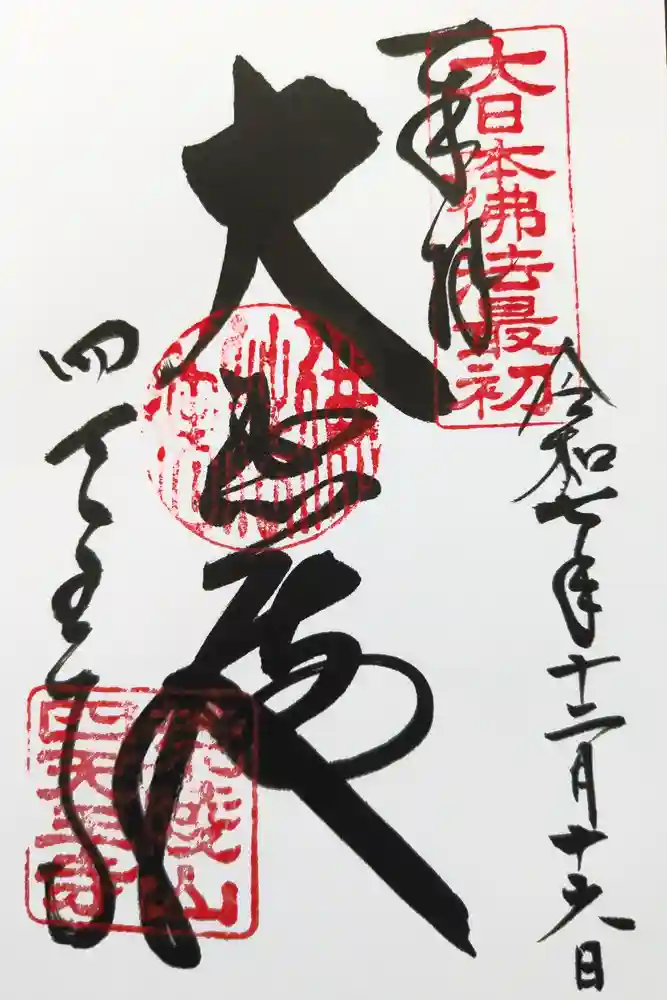 大日本佛法最初
奉拝
令和七年十二月十六日
大悲殿
四天王寺
荒陵山
四天王寺